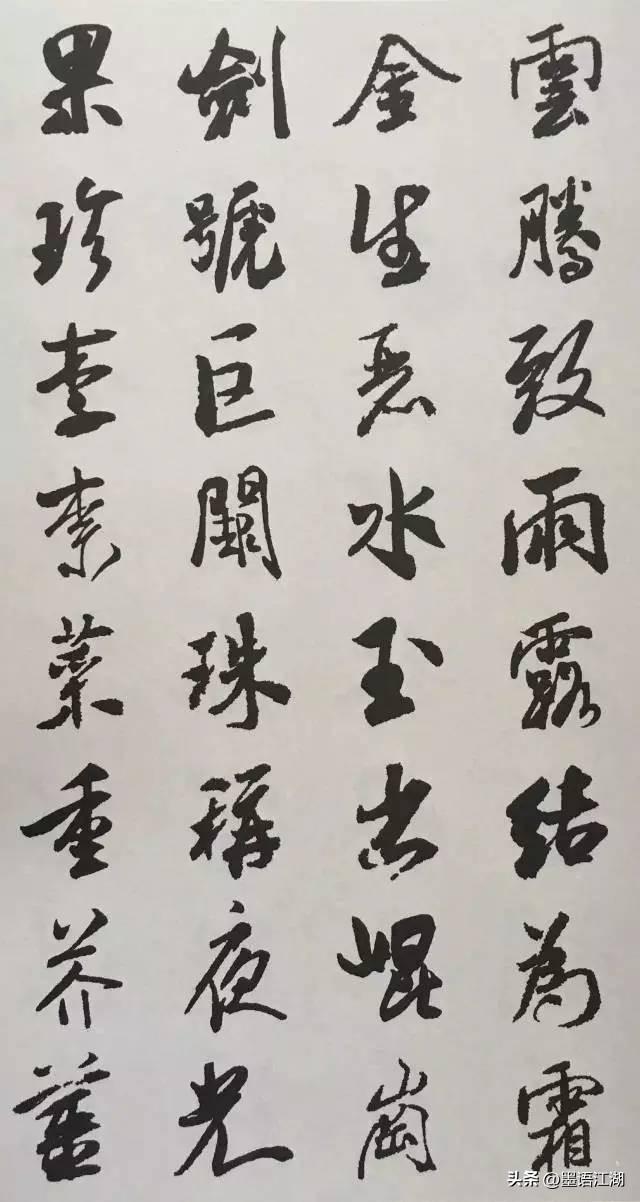 雲騰致雨露結為霜
金生麗水玉出崐崗
劍號巨闕珠稱夜光
果珍李柰菜重芥薑
头条 @墨语江湖